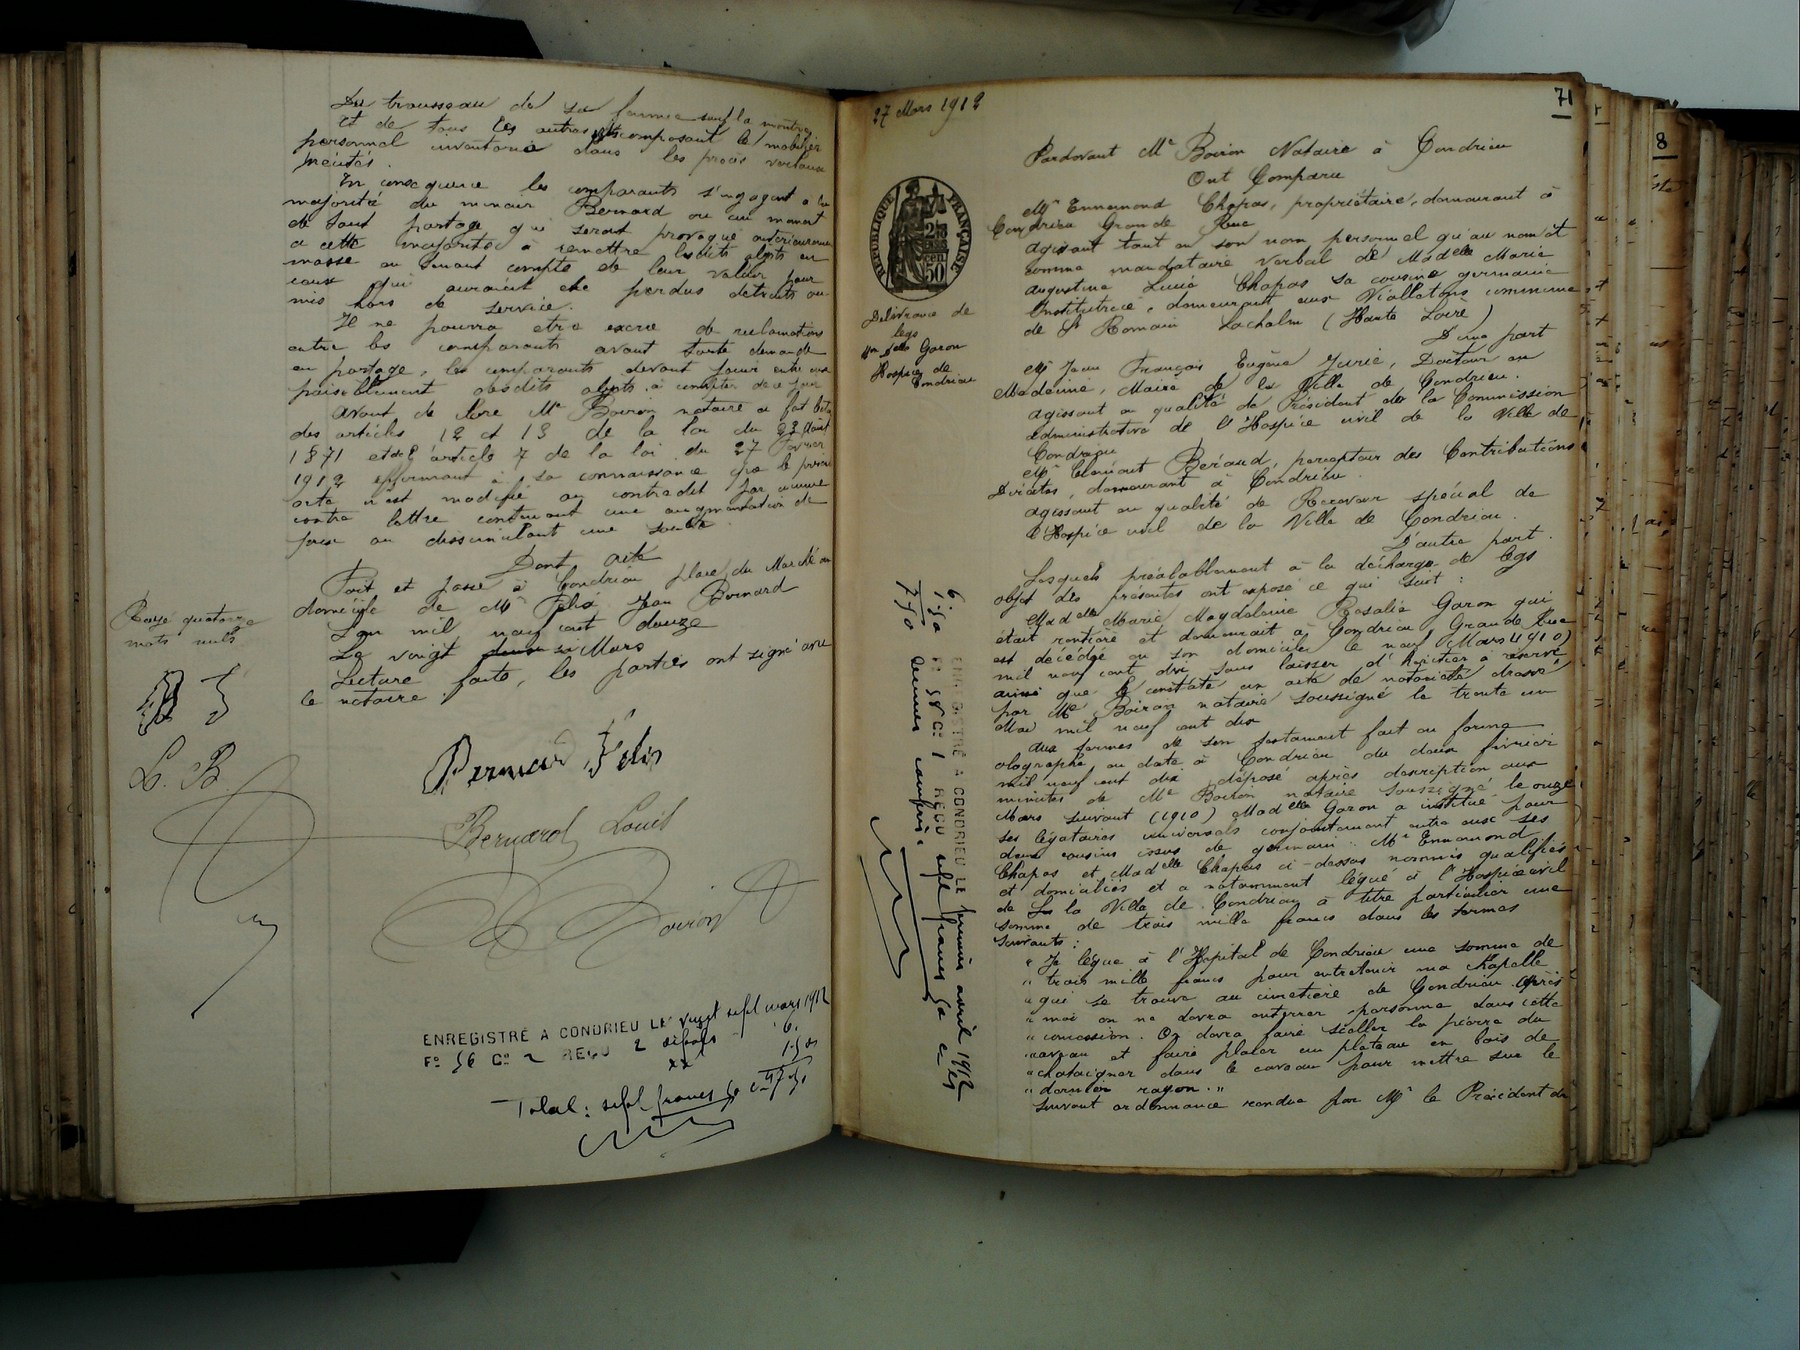 Du trousseau de sa femme sauf la montre
Et de tous les autres objets composant le mobilier
personnel inventorié dans les procès verbaux
précités.
En conséquence les comparants s'engagent à la
majorité du mineur Bernard ou au moment
de tout partage qui serait provoqué antérieurement
à cette majorité à remettre lesdits objets en
masse ou tenant compte de leur valeur pour
ceux qui auraient été perdus détruits ou
mis hors de service.
Il ne pourra etre exercé de réclamations
entre les comparants avant toute demande
en partage, les comparants devant jouir entre eux
paisiblement desdits objets à compter de ce jour
Avant de clore Me Boiron notaire a fait lecture
des articles 12 et 13 de la loi du 23 Août
1871 et de l'article 7 de la loi du 27 Février
1912 affirmant à sa connaissance que le présent
acte n'est modifié ou contredit par aucune
contre lettre contenant une augmentation de
prix ou dissimulant une soulte
Dont acte
Fait et passé à Condrieu place du Marché au
domicile de Mr Félix Jean Bernard
L'an mil neuf cent douze
Le vingt six Mars
Lecture faite, les parties ont signé avec
le notaire.
Rayé quatorze
mots nuls
L. B.
Bernard Félix
Bernard Louis
Boiron
ENREGISTRÉ A CONDRIEU LE vingt sept mars 1912
F° 56 C° 2 REÇU 2 6.
1.50
Total: sept francs 50 c 7.50
27 Mars 1912
71
8
RÉPUBLIQUE FRANÇAISE
50
Délivrance de
legs
Garon
Hospice de
Condrieu
6
1.50
7.50
ENREGISTRÉ A CONDRIEU LE premier avril 1912
F° 58 C° 1 REÇU sept francs 50 c
décimes compris
Pardevant Me Boiron Notaire à Condrieu
Ont Comparu
Mr Ennemond Chapas, propriétaire, demeurant à
Condrieu Grande Rue
agissant tant en son nom personnel qu'au nom et
comme mandataire verbal de Madelle Marie
augustine Chapas sa cousine germaine
Institutrice, demeurant aux Viallatons commune
de St Romain Lachalm (Haute Loire)
D'une part
Mr Jean François Eugène Jurie, Docteur en
Médecine, Maire de la Ville de Condrieu.
agissant en qualité de Président de la Commission
administrative de l'Hospice civil de la Ville de
Condrieu
Mr Clément Béraud, percepteur des Contributions
Directes, demeurant à Condrieu.
agissant en qualité de Receveur spécial de
l'Hospice civil de la Ville de Condrieu.
D'autre part.
Lesquels préalablement à la décharge de legs
objet des présentes ont exposé ce qui suit :
Madelle Marie Magdeleine Rosalie Garon qui
était rentière et demeurait à Condrieu Grande Rue
est décédée en son domicile le neuf Mars (1910)
mil neuf cent dix sans laisser d'héritier à réserve
ainsi que le constate un acte de notoriété dressé
par Me Boiron notaire soussigné le trente un
Mai mil neuf cent dix
aux termes de son testament fait en forme
olographe en date à Condrieu du deux février
mil neuf cent dix déposé après description aux
minutes de Me Boiron notaire soussigné le onze
Mars suivant (1910) Madelle Garon a institué pour
ses légataires universels conjointement entre eux ses
deux cousins issus de germain : Mr Ennemond
Chapas et Madelle Chapas ci-dessus nommés qualifiés
et domiciliés et a notamment légué à l'Hospice civil
de la Ville de Condrieu à titre particulier une
somme de trois mille francs dans les termes
suivants :
" Je lègue à l'Hopital de Condrieu une somme de
" trois mille francs pour entretenir ma Chapelle
" qui se trouve au cimetière de Condrieu après
" moi on ne devra enterrer personne dans cette
" concession. On devra faire sceller la pierre du
" caveau et faire placer un plateau en bois de
" chataignier dans le caveau pour mettre sur le
" dernier rayon. "
Suivant ordonnance rendue par Mr le Président du